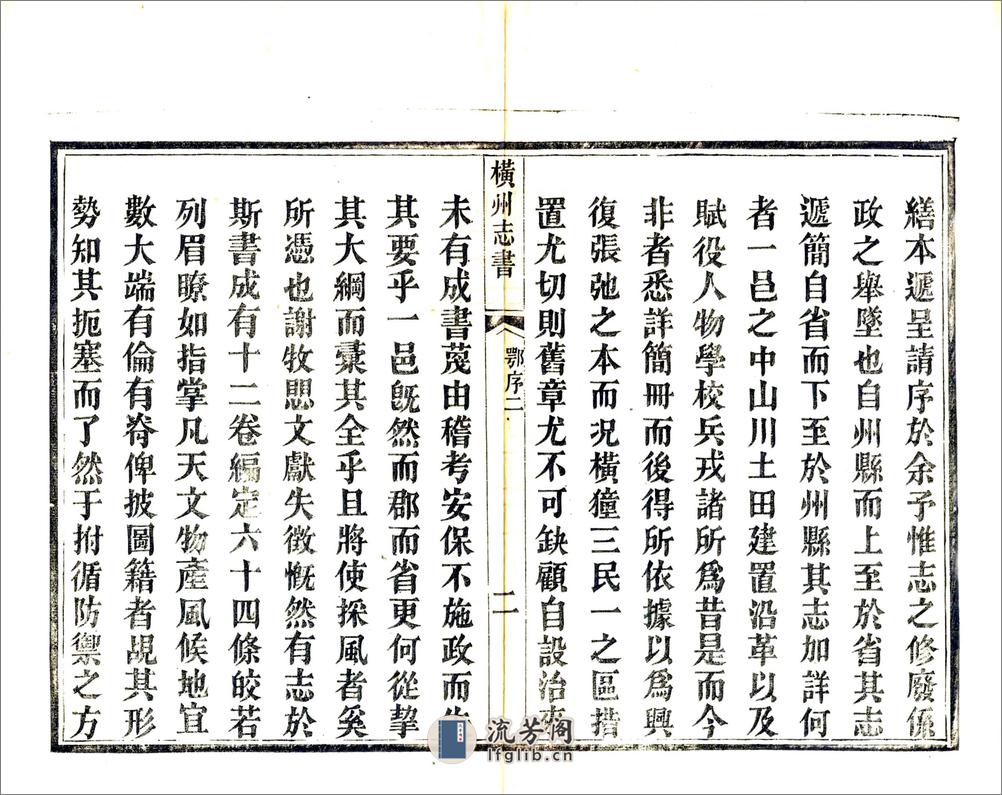 繕本遞呈請序於余予惟志之修廢係
政之舉墜也自州縣而上至於省其志
遞簡自省而下至於州縣其志加詳何
者一邑之中山川土田建置沿革以及
賦役人物學校兵戎諸所爲昔是而今
非者悉詳簡冊而後得所依據以爲興
復張弛之本而况橫獞三民一之區措
置尤切則舊章尤不可缺顧自設治來
橫州志書
鄂序二
二
未有成書蔑由稽考安保不施政而失
其要乎一邑旣然而郡而省更何從挈
其大綱而彙其全乎且將使採風者奚
所憑也謝牧思文獻失徵慨然有志於
斯書成有十二卷編定六十四條皎若
列眉瞭如指掌凡天文物產風候地宜
數大端有倫有脊俾披圖籍者覘其形
勢知其扼塞而了然于拊循防禦之方
流芳阁
lfglib.cn